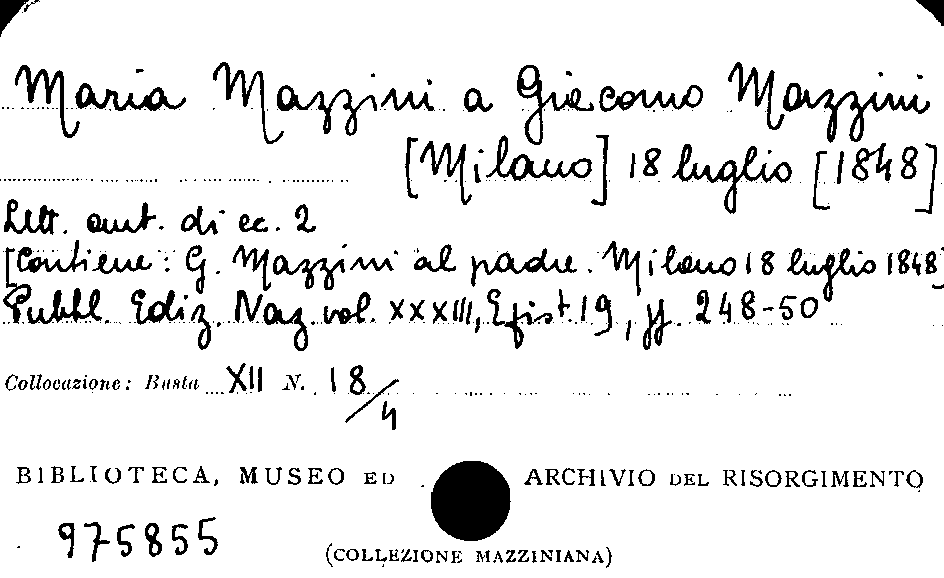 Maria Mazzini a Giacomo Mazzini
[Milano] 18 luglio [1848]
Lett. aut. di cc. 2
[Contiene: G. Mazzini al padre. Milano 18 luglio 1848]
Pubbl. Ediz. Naz. vol. XXXIII, Epist. 19, pp. 248-50
Collocazione: Busta XII N. 18/4
BIBLIOTECA, MUSEO ED ARCHIVIO DEL RISORGIMENTO
975855
(COLLEZIONE MAZZINIANA)